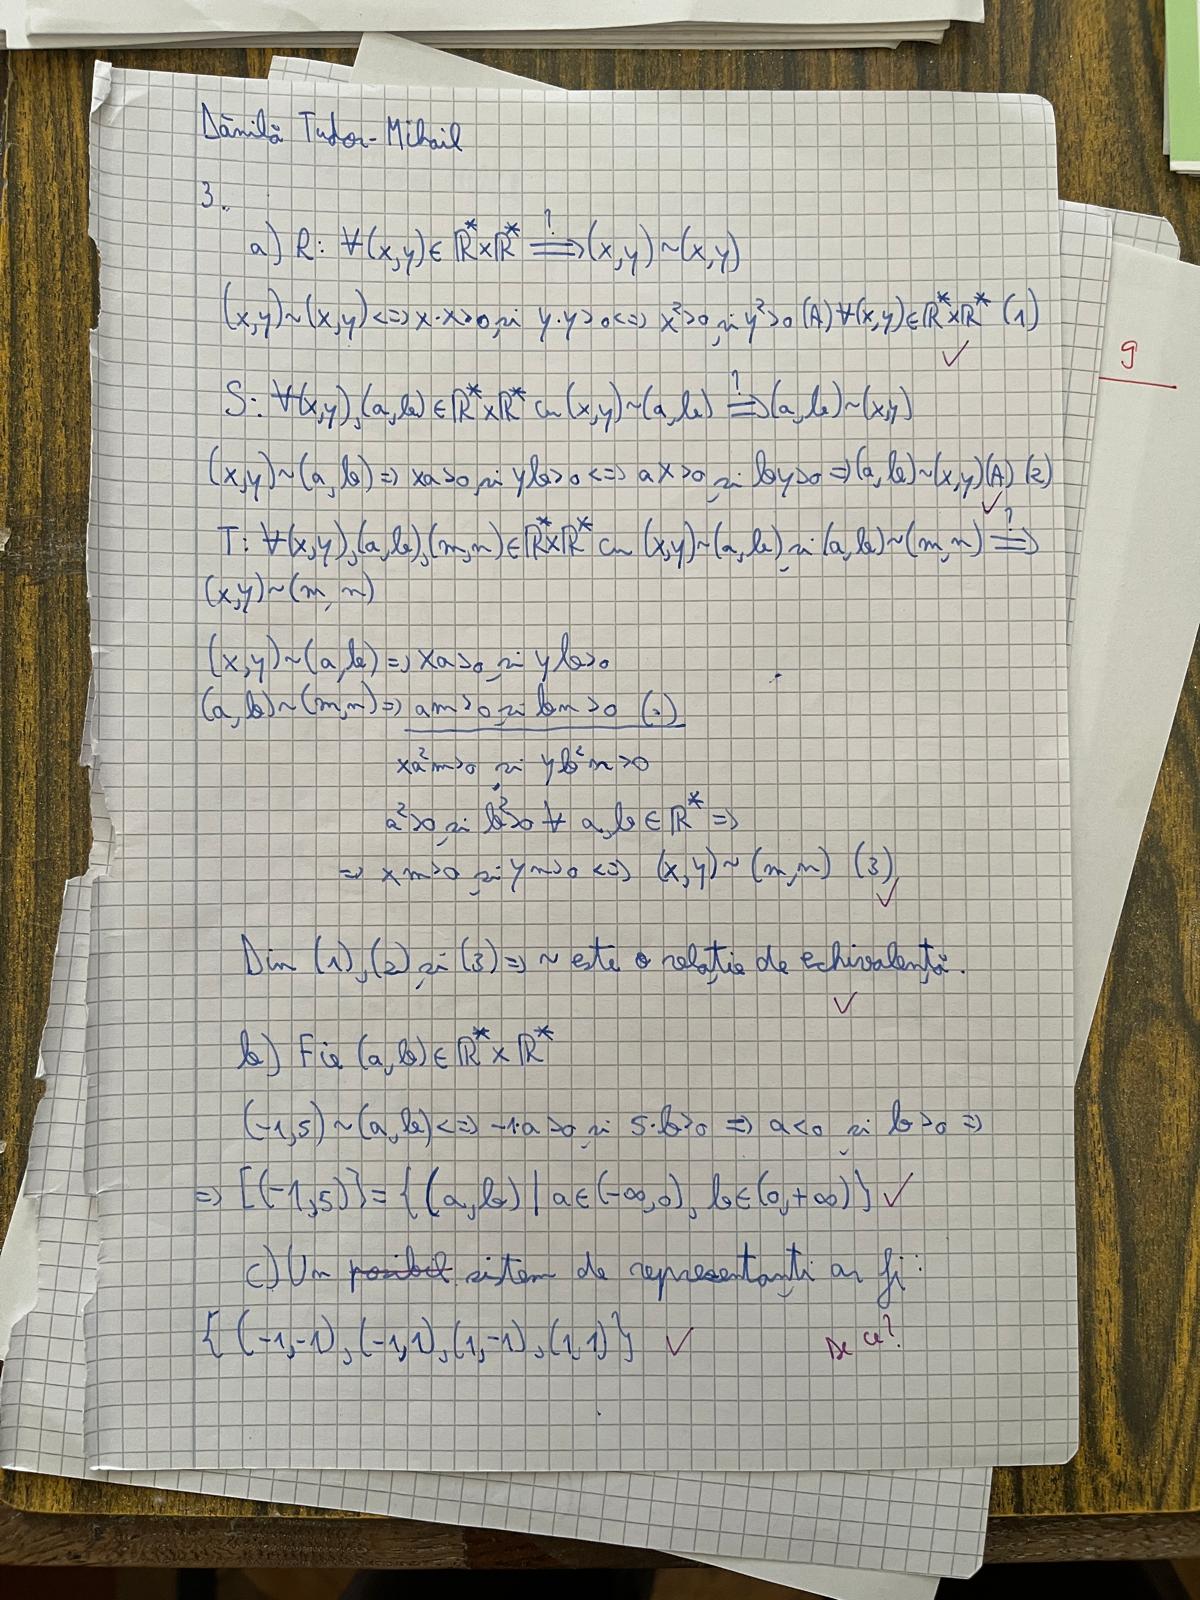 Dănilă Tudor-Mihail
3.
a) R: ∀(x,y)∈ℝ*×ℝ* ?⟹ (x,y)~(x,y)
(x,y)~(x,y) <=> x·x>0 și y·y>0 <=> x²>0 și y²>0 (A) ∀(x,y)∈ℝ*×ℝ* (1)
✓
9
S: ∀(x,y),(a,b)∈ℝ*×ℝ* cu (x,y)~(a,b) ?⟹ (a,b)~(x,y)
(x,y)~(a,b) => xa>0 și yb>0 <=> ax>0 și by>0 => (a,b)~(x,y) (A) (2)
✓
T: ∀(x,y),(a,b),(m,n)∈ℝ*×ℝ* cu (x,y)~(a,b) și (a,b)~(m,n) ?⟹
(x,y)~(m,n)
(x,y)~(a,b) => xa>0 și yb>0
(a,b)~(m,n) => am>0 și bn>0 (·)
xa²m>0 și yb²n>0
a²>0 și b²>0 ∀ a,b∈ℝ* =>
=> xm>0 și yn>0 <=> (x,y)~(m,n) (3)
✓
Din (1),(2) și (3) => ~ este o relație de echivalență.
✓
b) Fie (a,b)∈ℝ*×ℝ*
(-1,5)~(a,b) <=> -1·a>0 și 5·b>0 => a<0 și b>0 =>
=> [(-1,5)]={(a,b) | a∈(-∞,0), b∈(0,+∞)} ✓
c) Un posibil sistem de reprezentanți ar fi:
{(-1,-1),(-1,1),(1,-1),(1,1)} ✓ De ce?